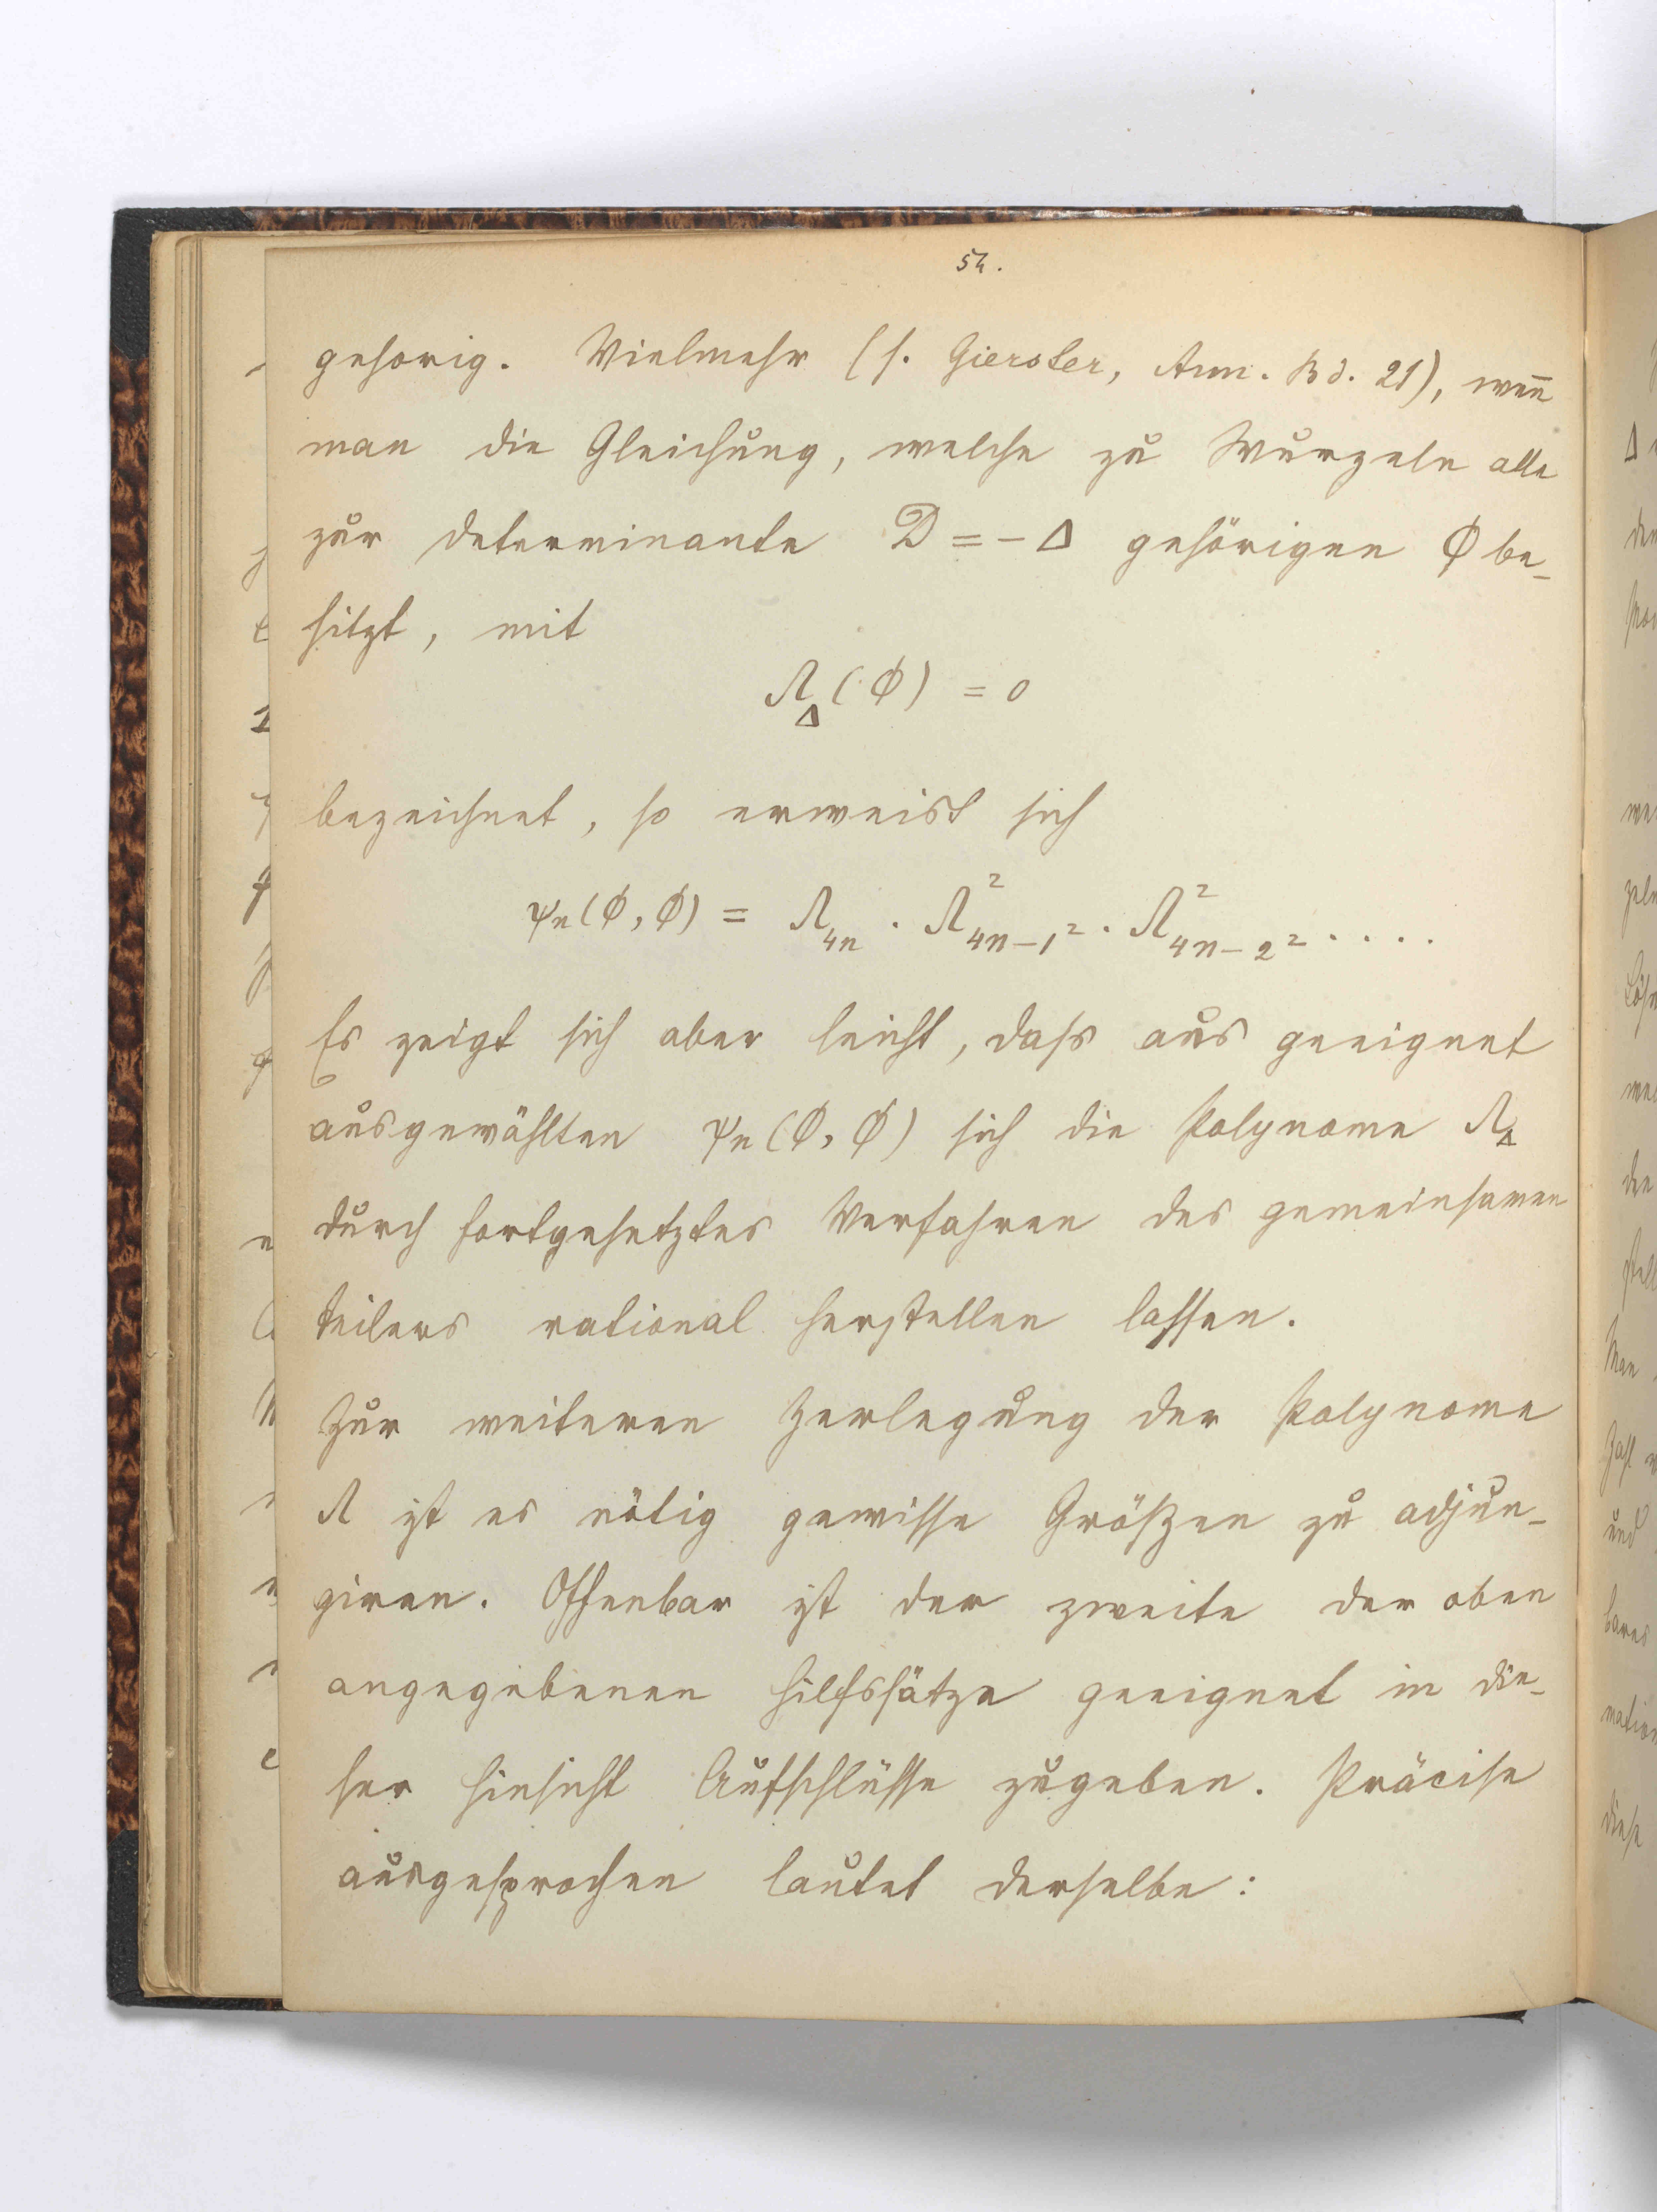 54.
gehorig. Vielmehr (s. Gierster, Ann. Bd. 21), weñ
man die Gleichung, welche zu Wurzeln alle
zur Determinante D = - Δ gehörigen ϕ be-
sitzt, mit
Λ_Δ (ϕ) = 0
bezeichnet, so erweist sich
ψn(ϕ, ϕ) = Λ_{4n} · Λ²_{4n-1²} · Λ²_{4n-2²} · · · ·
Es zeigt sich aber leicht, dass aus geeignet
ausgewählten ψn(ϕ, ϕ) sich die Polynome Λ_Δ
durch fortgesetztes Verfahren des gemeinsamen
Teilers rational herstellen lassen.
Zur weiteren Zerlegung der Polynome
Λ ist es nötig gewisse Größen zu adjun-
giren. Offenbar ist der zweite der oben
angegebenen Hilfssätze geeignet in die-
ser Hinsicht Aufschlüsse zugeben. Präcise
ausgesprochen lautet derselbe: